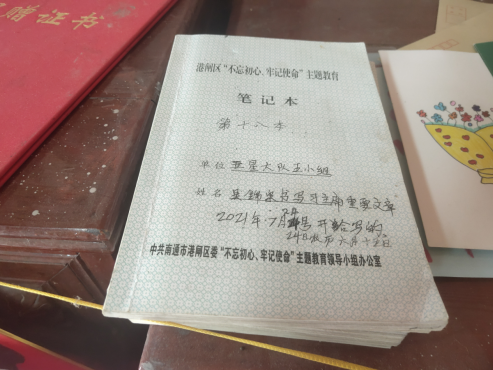 赠证书
港闸区“不忘初心、牢记使命”主题教育
笔记本
第十八本
单位 五星大队五小组
姓名 吴锦泉书写习主席重要文章
2021年7月 号开始写的
24日
中共南通市港闸区委“不忘初心、牢记使命”主题教育领导小组办公室